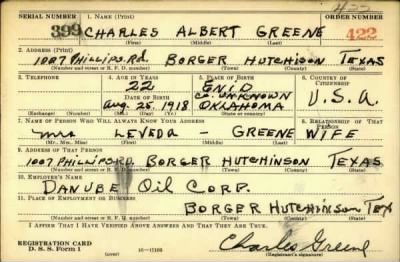 422
SERIAL NUMBER 1. NAME (Print) ORDER NUMBER
399 CHARLES ALBERT GREENE 422
(First) (Middle) (Last)
2. ADDRESS (Print)
1007 Phillips Rd. BORGER HUTCHISON TEXAS
(Number and street or R. F. D. number) (Town) (County) (State)
3. TELEPHONE 4. AGE IN YEARS 5. PLACE OF BIRTH 6. COUNTRY OF CITIZENSHIP
22 ENID
DATE OF BIRTH Co. UNKNOWN U.S.A.
Aug. 25. 1918 OKLAHOMA
(Exchange) (Number) (Mo.) (Day) (Yr.) (State or country)
7. NAME OF PERSON WHO WILL ALWAYS KNOW YOUR ADDRESS 8. RELATIONSHIP OF THAT PERSON
mrs LEVEDA - GREENE WIFE
(Mr., Mrs., Miss) (First) (Middle) (Last)
9. ADDRESS OF THAT PERSON
1007 PHILLIPS RD. BORGER HUTCHINSON TEXAS
(Number and street or R. F. D. number) (Town) (County) (State)
10. EMPLOYER'S NAME
DANUBE Oil CORP.
11. PLACE OF EMPLOYMENT OR BUSINESS
BORGER HUTCHINSON TEX
(Number and street or R. F. D. number) (Town) (County) (State)
I AFFIRM THAT I HAVE VERIFIED ABOVE ANSWERS AND THAT THEY ARE TRUE.
REGISTRATION CARD
D. S. S. Form 1 (over) Charles Greene
(Registrant's signature)